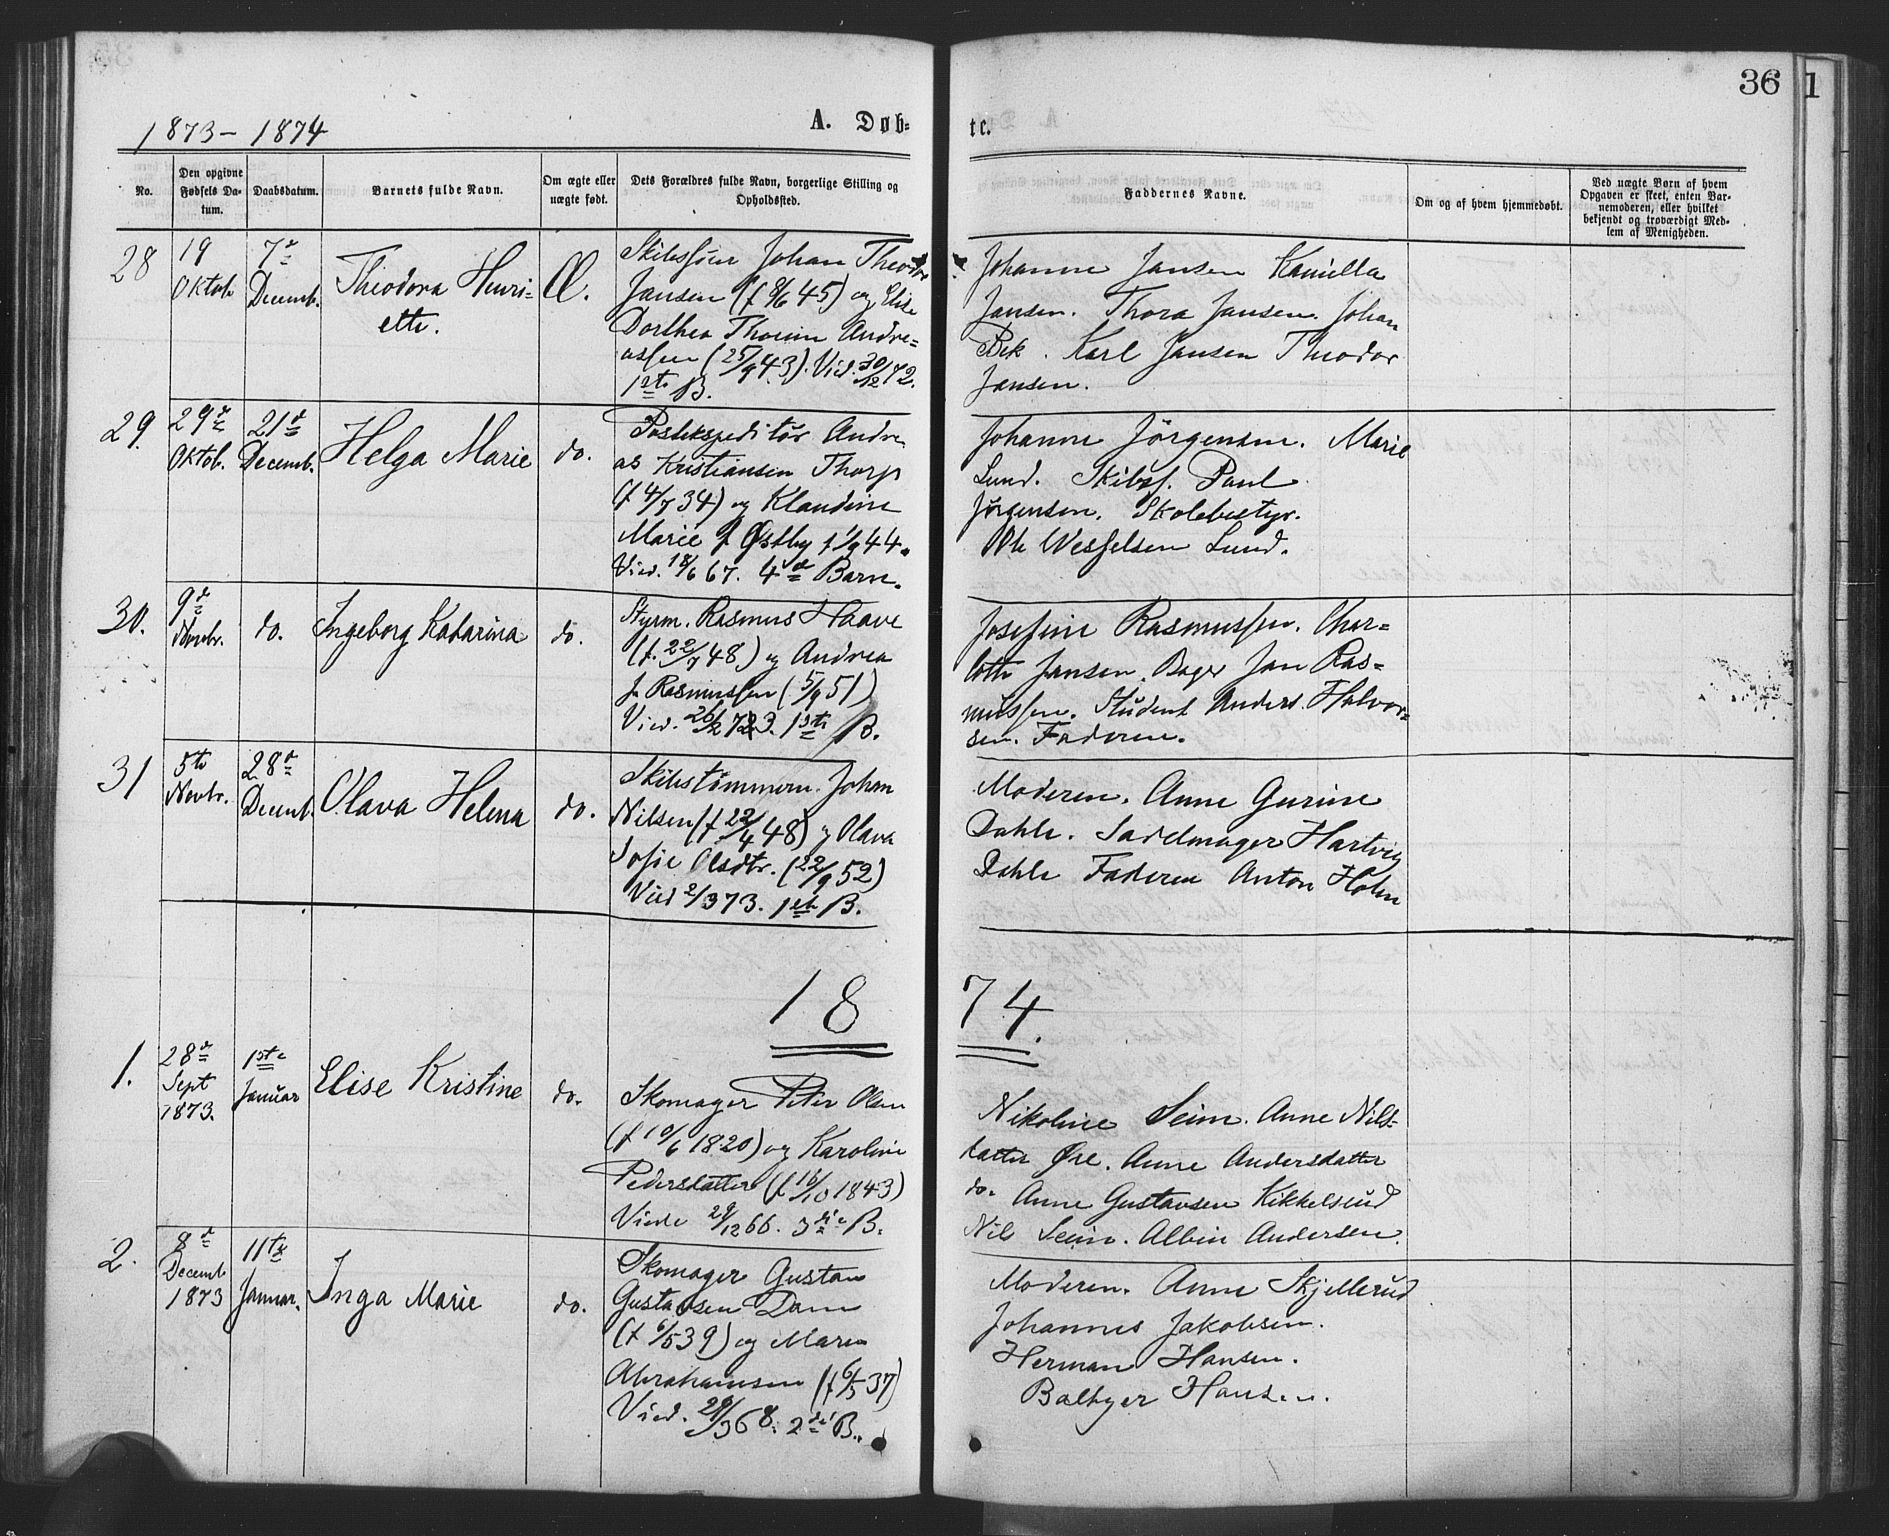 36
1
1873 - 1874
A. Døb-
te.
No.
Den opgivne Fødsels Da-tum.
Daabsdatum.
Barnets fulde Navn.
Om ægte eller uægte født.
Dets Forældres fulde Navn, borgerlige Stilling og Opholdssted.
Faddernes Navne.
Om og af hvem hjemmedøbt.
Ved uægte Børn af hvem Opgaven er skeet, enten Bar-nemoderen, eller hvilket bekjendt og troværdigt Med-lem af Menigheden.
28
19 Oktob.
7de Decemb.
Theodora Henri-
ette.
Æ.
Skibsfører Johan Theodor
Jansen (f 8/6 45) og Elise
Dorthea Andre-
assen (25/9 43). Vied. 30/12 72.
1ste B.
Johanne Jansen Kamilla
Jansen. Thora Jansen. Johan
Bek. Karl Jansen Theodor
Jansen.
29.
29de Oktob.
21de Decemb.
Helga Marie
do.
Postekspeditør Andre
as Kristiansen Thorp
(f 4/7 34) og Klaudine
Marie f Østby f 1/9 44.
Vied. 18/6 67. 4de Barn.
Johanne Jörgensen. Marie
Lund. Skibsf. Paul
Jörgensen. Skolebestyr.
Ole Wesselsen Lund.
30.
9de Novbr.
do.
Ingeborg Katarina
do.
Styrm. Rasmus Haave
(f. 22/7 48) og Andrea
f. Rasmussen (5/9 51)
Vied. 26/2 73. 1ste B.
Josefine Rasmussen. Char-
lotte Jansen. Bager Jan Ras-
mussen. Student Anders Halvor-
sen. Faderen.
31
5te Novbr.
28de Decemb.
Olava Helena
do.
Skibstømmerm. Johan
Nilsen (f 22/4 48) og Olava
Sofie Olsdtr. (22/9 52)
Vied 2/3 73. 1ste B.
Moderen. Anne Gurine
Dahle. Sadelmager Hartvig
Dahle Faderen Anton Holm
18
74.
1.
28de Sept 1873.
1ste Januar
Elise Kristine
do.
Skomager Peter Olsen
(f 10/6 1820) og Karoline
Pedersdatter (f 16/10 1843)
Viede 29/12 66. 3die B.
Nikoline Seim. Anne Nils-
datter Øre. Anne Andersdatter
do. Anne Gustavsen Kikkelsrud
Nil Seim. Albin Andersen.
2.
8de Decemb 1873
11te Januar.
Inga Marie
do.
Skomager Gustav
Gustavsen Dam
(f 6/5 39) og Maren
Abrahamsen (f 6/3 37)
Vied. 29/3 68. 2die B.
Moderen. Anne Skjellerud
Johannes Jakobsen.
Herman Hansen.
Balbjer Hansen.